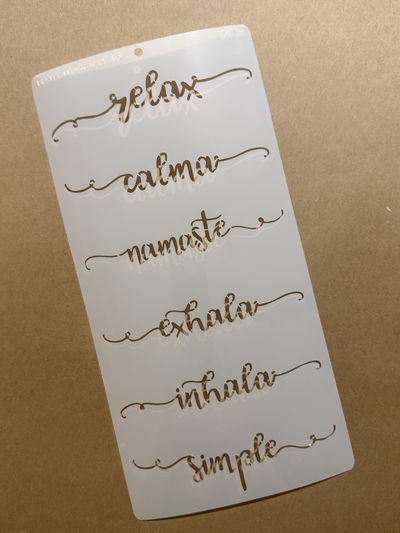 relax
calma
namaste
exhala
inhala
simple